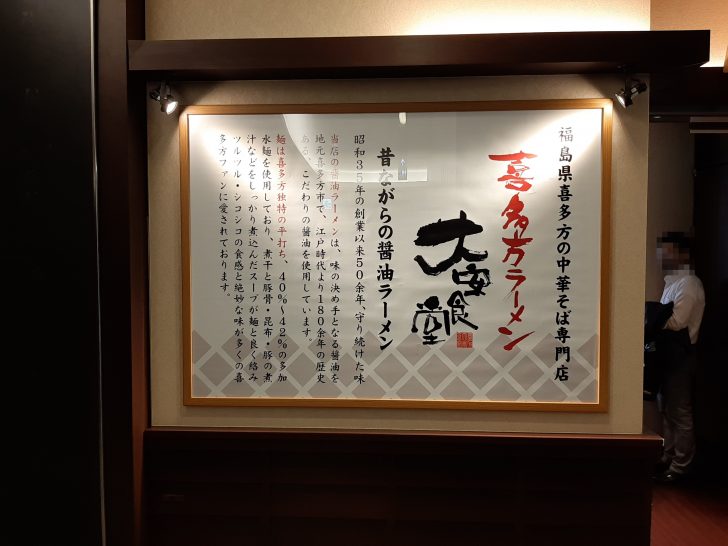 福島県喜多方の中華そば専門店
喜多方ラーメン
大安食堂
昔ながらの醤油ラーメン
昭和35年の創業以来50余年、守り続けた味
当店の醤油ラーメンは、味の決め手となる醤油を
地元喜多方市で、江戸時代より180余年の歴史
ある、こだわりの醤油を使用しています。
麺は喜多方独特の平打ち、40%〜42%の多加
水麺を使用しており、煮干と豚骨・昆布・豚の煮
汁などをしっかり煮込んだスープが麺と良く絡み
ツルツル・シコシコの食感と絶妙な味が多くの喜
多方ファンに愛されております。